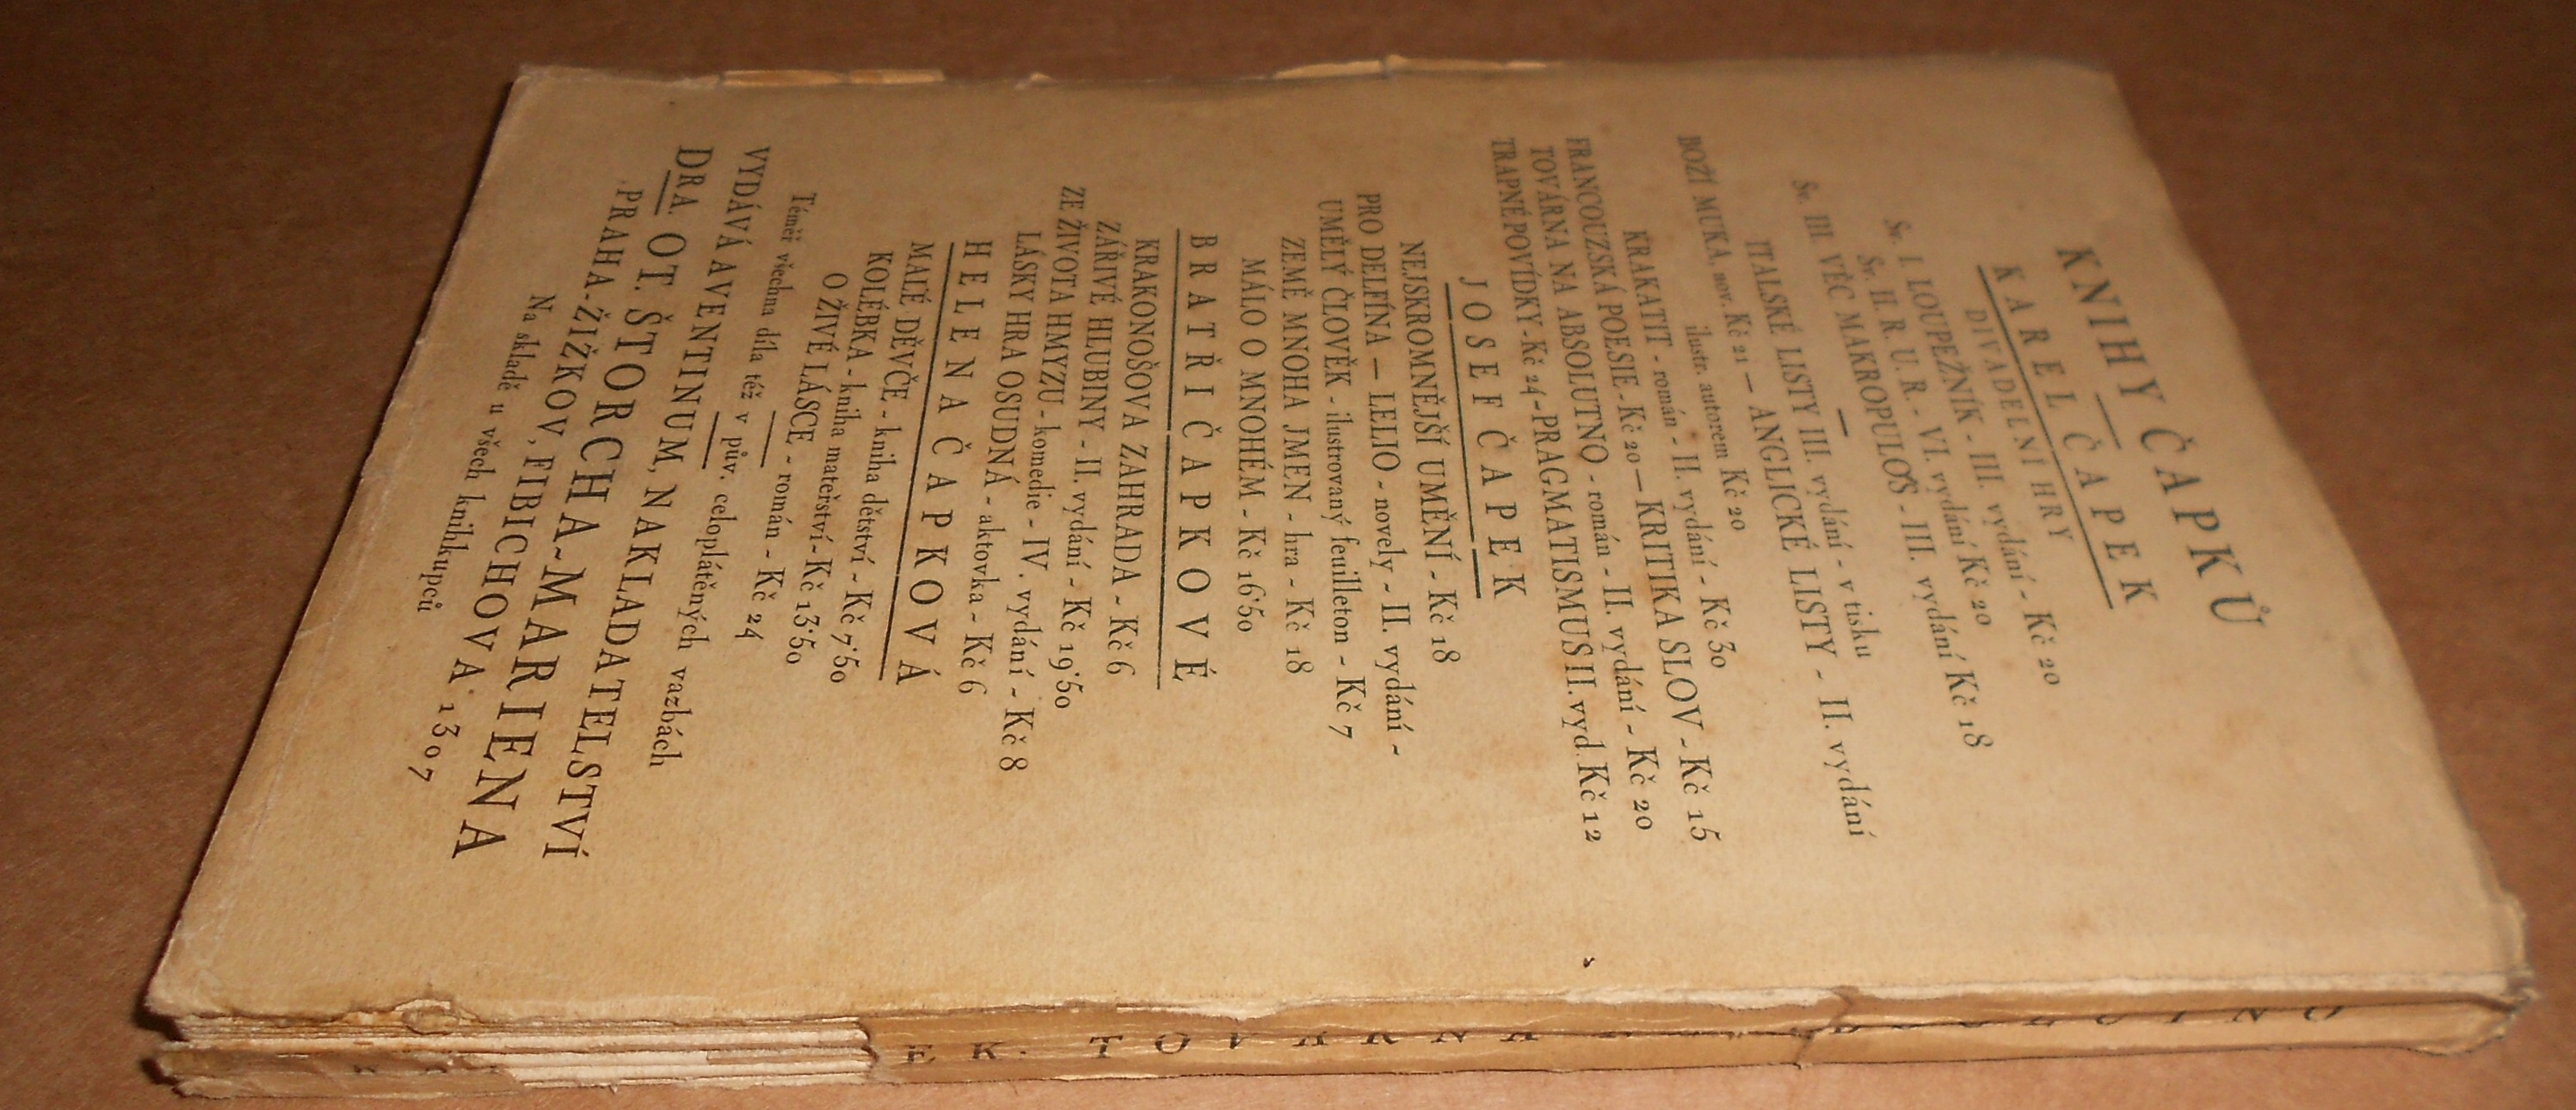 KNIHY ČAPKŮ
KAREL ČAPEK
DIVADELNÍ HRY
Sv. I. LOUPEŽNÍK - III. vydání - Kč 20
Sv. II. R. U. R. - VI. vydání Kč 20
Sv. III. VĚC MAKROPULOS - III. vydání Kč 18
ITALSKÉ LISTY III. vydání - v tisku
BOŽÍ MUKA, nov. Kč 21 — ANGLICKÉ LISTY - II. vydání
ilustr. autorem Kč 20
KRAKATIT - román - II. vydání - Kč 30
FRANCOUZSKÁ POESIE - Kč 20 — KRITIKA SLOV - Kč 15
TOVÁRNA NA ABSOLUTNO - román - II. vydání - Kč 20
TRAPNÉ POVÍDKY - Kč 24 - PRAGMATISMUS II. vyd. Kč 12
JOSEF ČAPEK
NEJSKROMNĚJŠÍ UMĚNÍ - Kč 18
PRO DELFÍNA — LELIO - novely - II. vydání -
UMĚLÝ ČLOVĚK - ilustrovaný feuilleton - Kč 7
ZEMĚ MNOHA JMEN - hra - Kč 18
MÁLO O MNOHÉM - Kč 16·50
BRATŘI ČAPKOVÉ
KRAKONOŠOVA ZAHRADA - Kč 6
ZÁŘIVÉ HLUBINY - II. vydání - Kč 19·50
ZE ŽIVOTA HMYZU - komedie - IV. vydání - Kč 8
LÁSKY HRA OSUDNÁ - aktovka - Kč 6
HELENA ČAPKOVÁ
MALÉ DĚVČE - kniha dětství - Kč 7·50
KOLÉBKA - kniha mateřství - Kč 13·50
O ŽIVÉ LÁSCE - román - Kč 24
Téměř všechna díla též v pův. celoplátěných vazbách
VYDÁVÁ AVENTINUM, NAKLADATELSTVÍ
DRA. OT. ŠTORCHA-MARIENA
PRAHA-ŽIŽKOV, FIBICHOVA 1307
Na skladě u všech knihkupců
EK. TOVÁRNA ABSOLUTNO